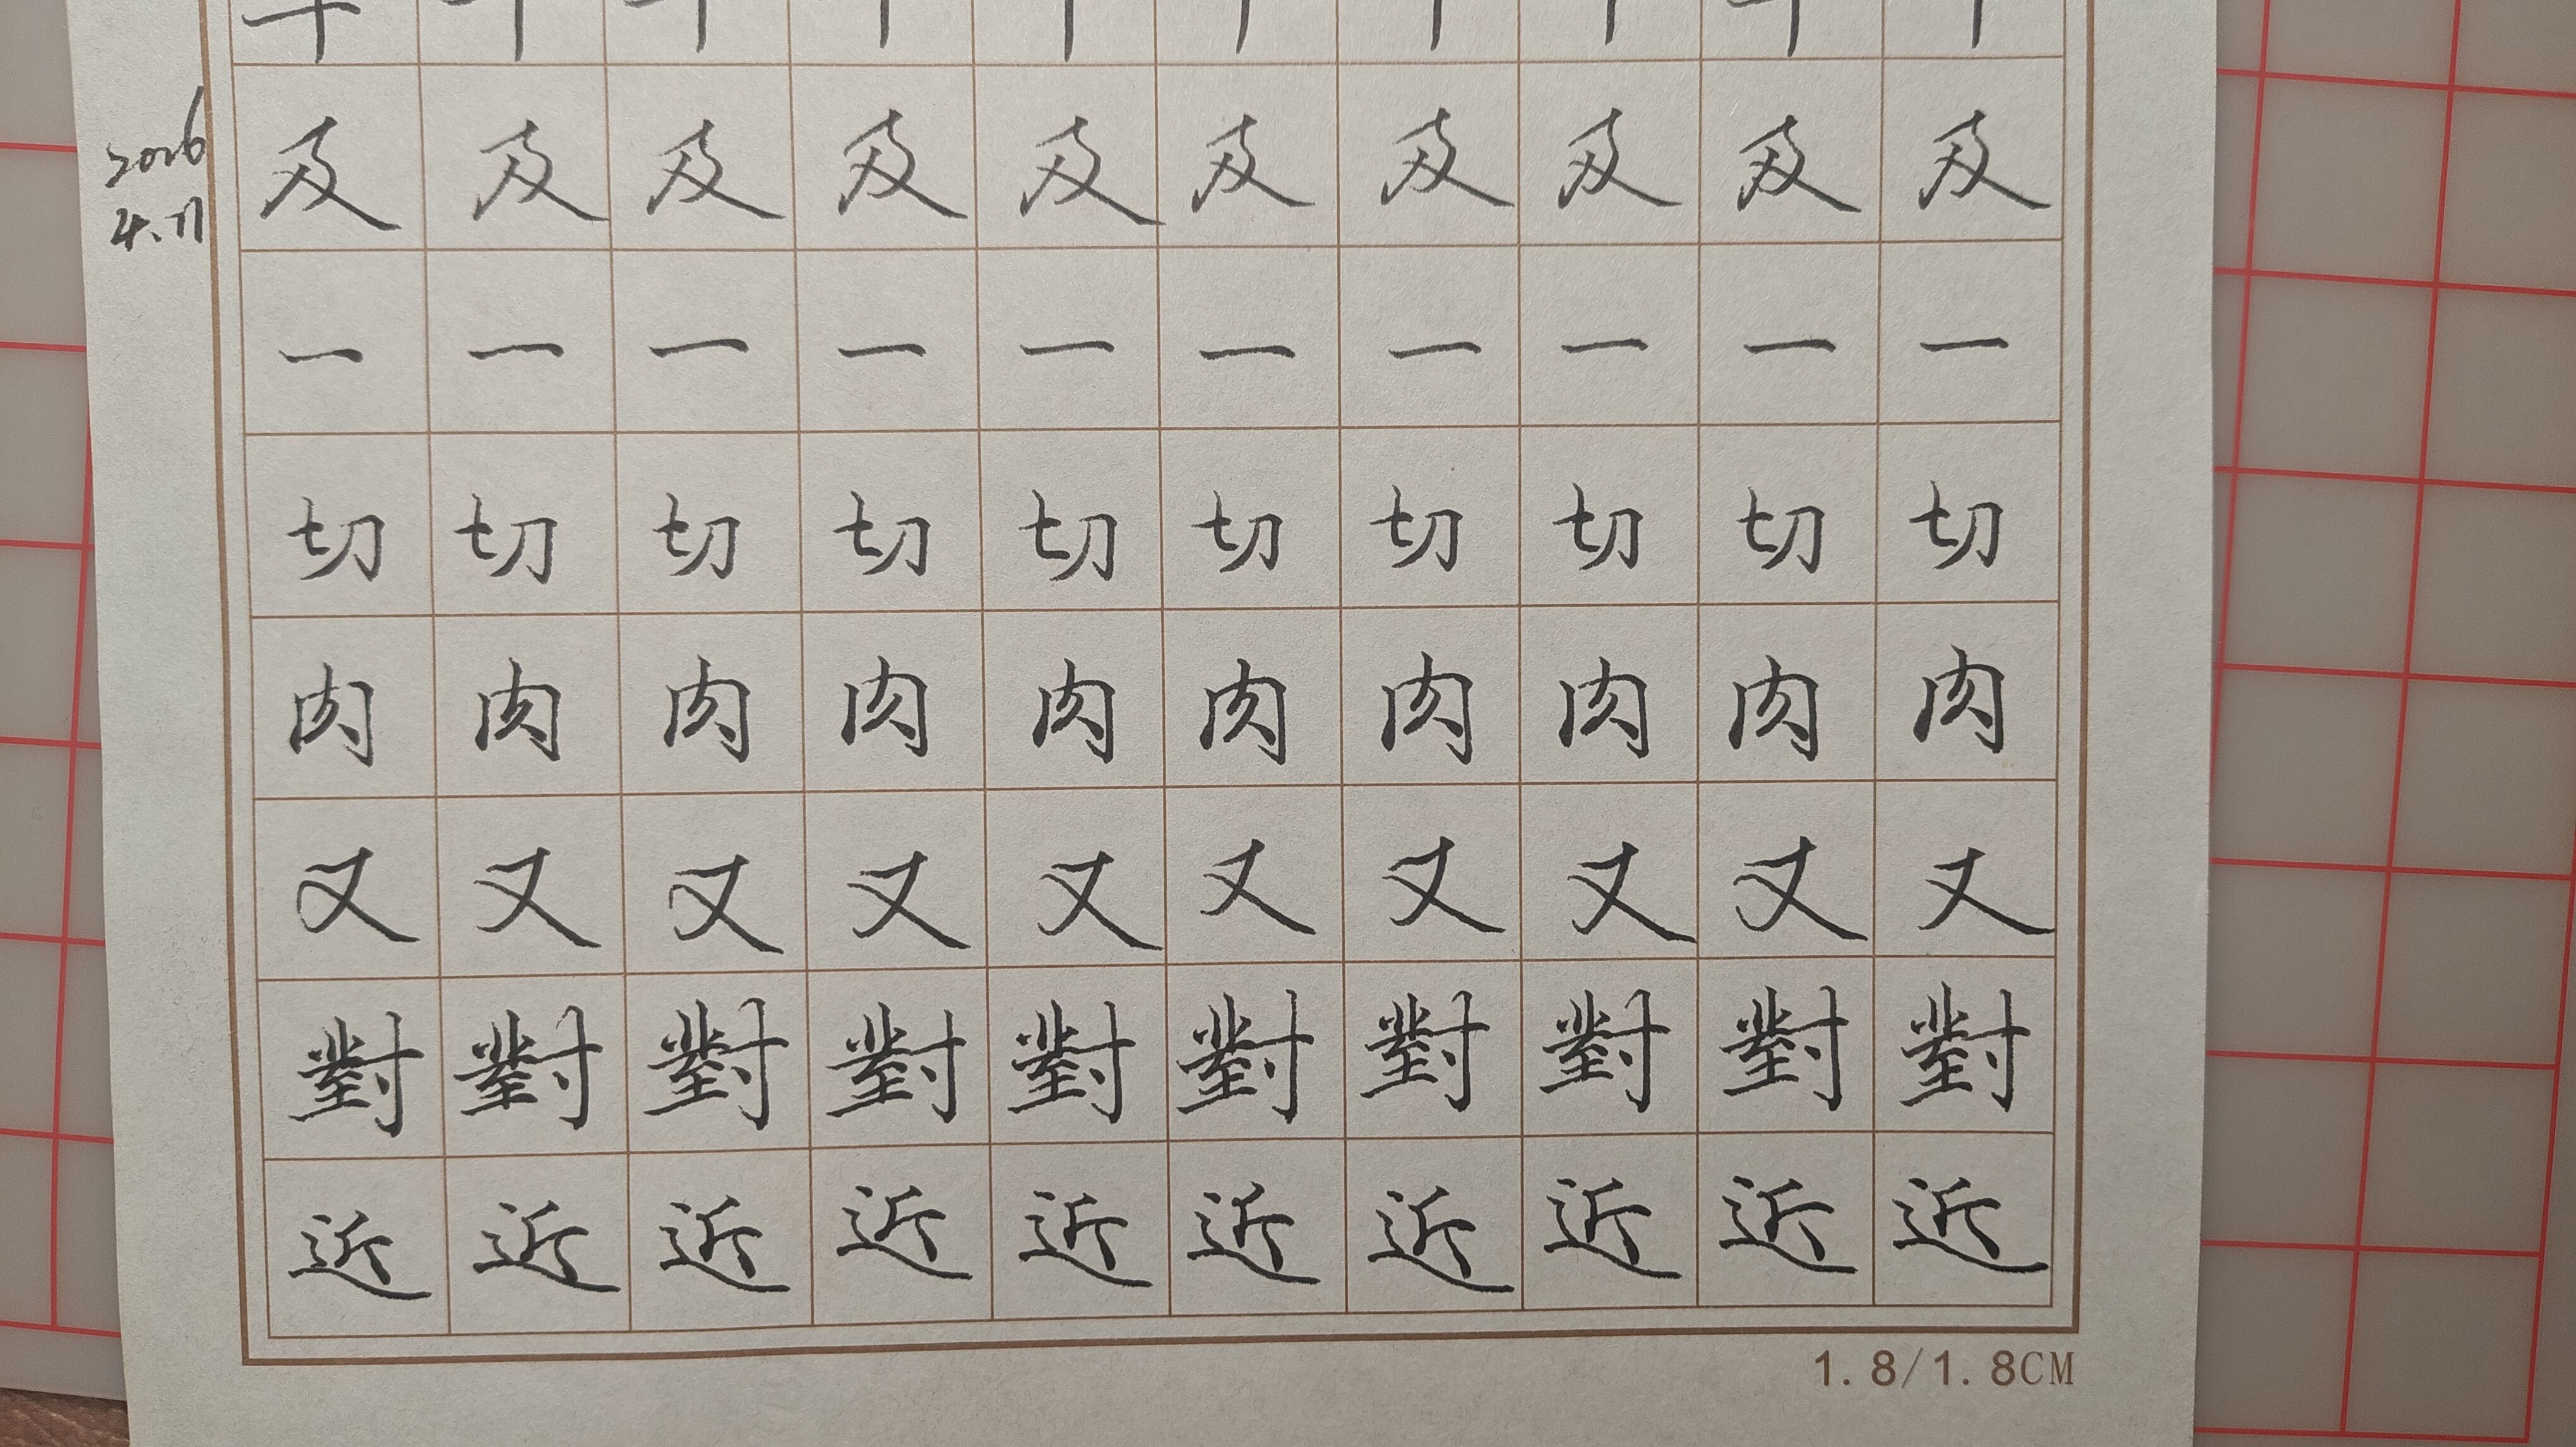 2026
4.11
及及及及及及及及及及
一一一一一一一一一一
切切切切切切切切切切
肉肉肉肉肉肉肉肉肉肉
又又又又又又又又又又
對對對對對對對對對對
近近近近近近近近近近
1.8/1.8CM